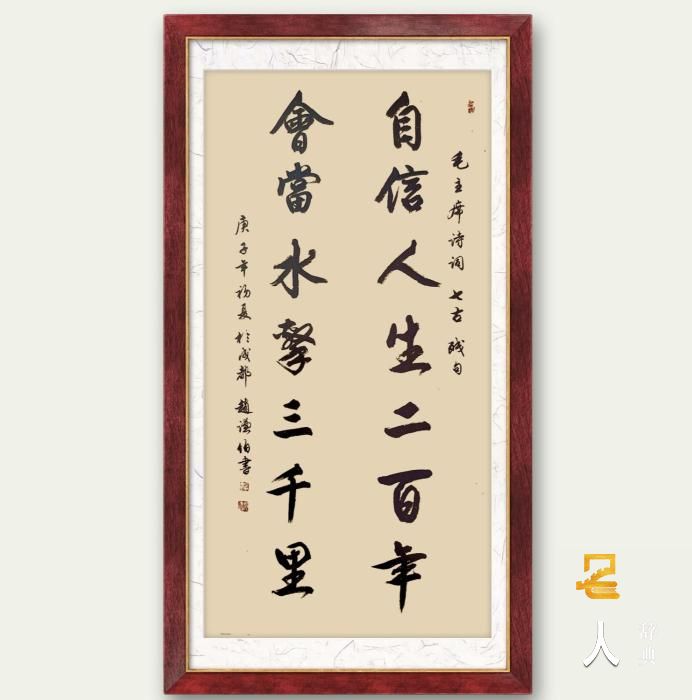 毛主席诗词 七古 残句
自信人生二百年
會當水擊三千里
庚子年初夏 於成都 趙谦伯書
名人
辞典